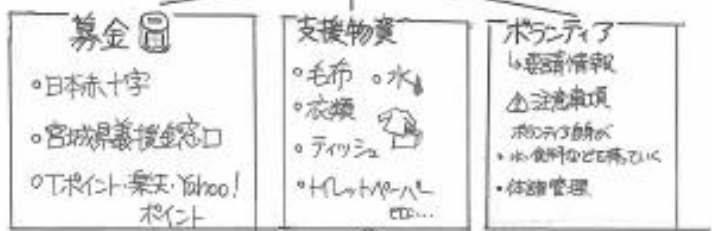 募金
・日本赤十字
・宮城県義援金窓口
・Tポイント・楽天・Yahoo!
ポイント
支援物資
・毛布 ・水
・衣類
・ティッシュ
・トイレットペーパー
etc...
ボランティア
↳要請情報
⚠注意事項
ボランティア自身が
・水・食料などを持っていく
・体調管理